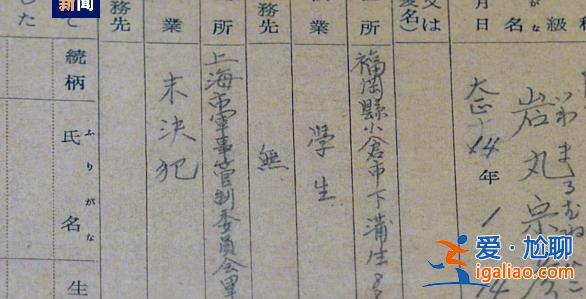 級
名
がな
岩丸宗
月日
大正
14年1
14
又は
名)
所
福岡縣小倉市下蒲生
業
學生
務先
無
所
上海市軍事管制委員会
業
未決犯
務先
て
続柄
氏名
ふりがな
生
した
央视新闻
爱·尬聊
igaliao.com